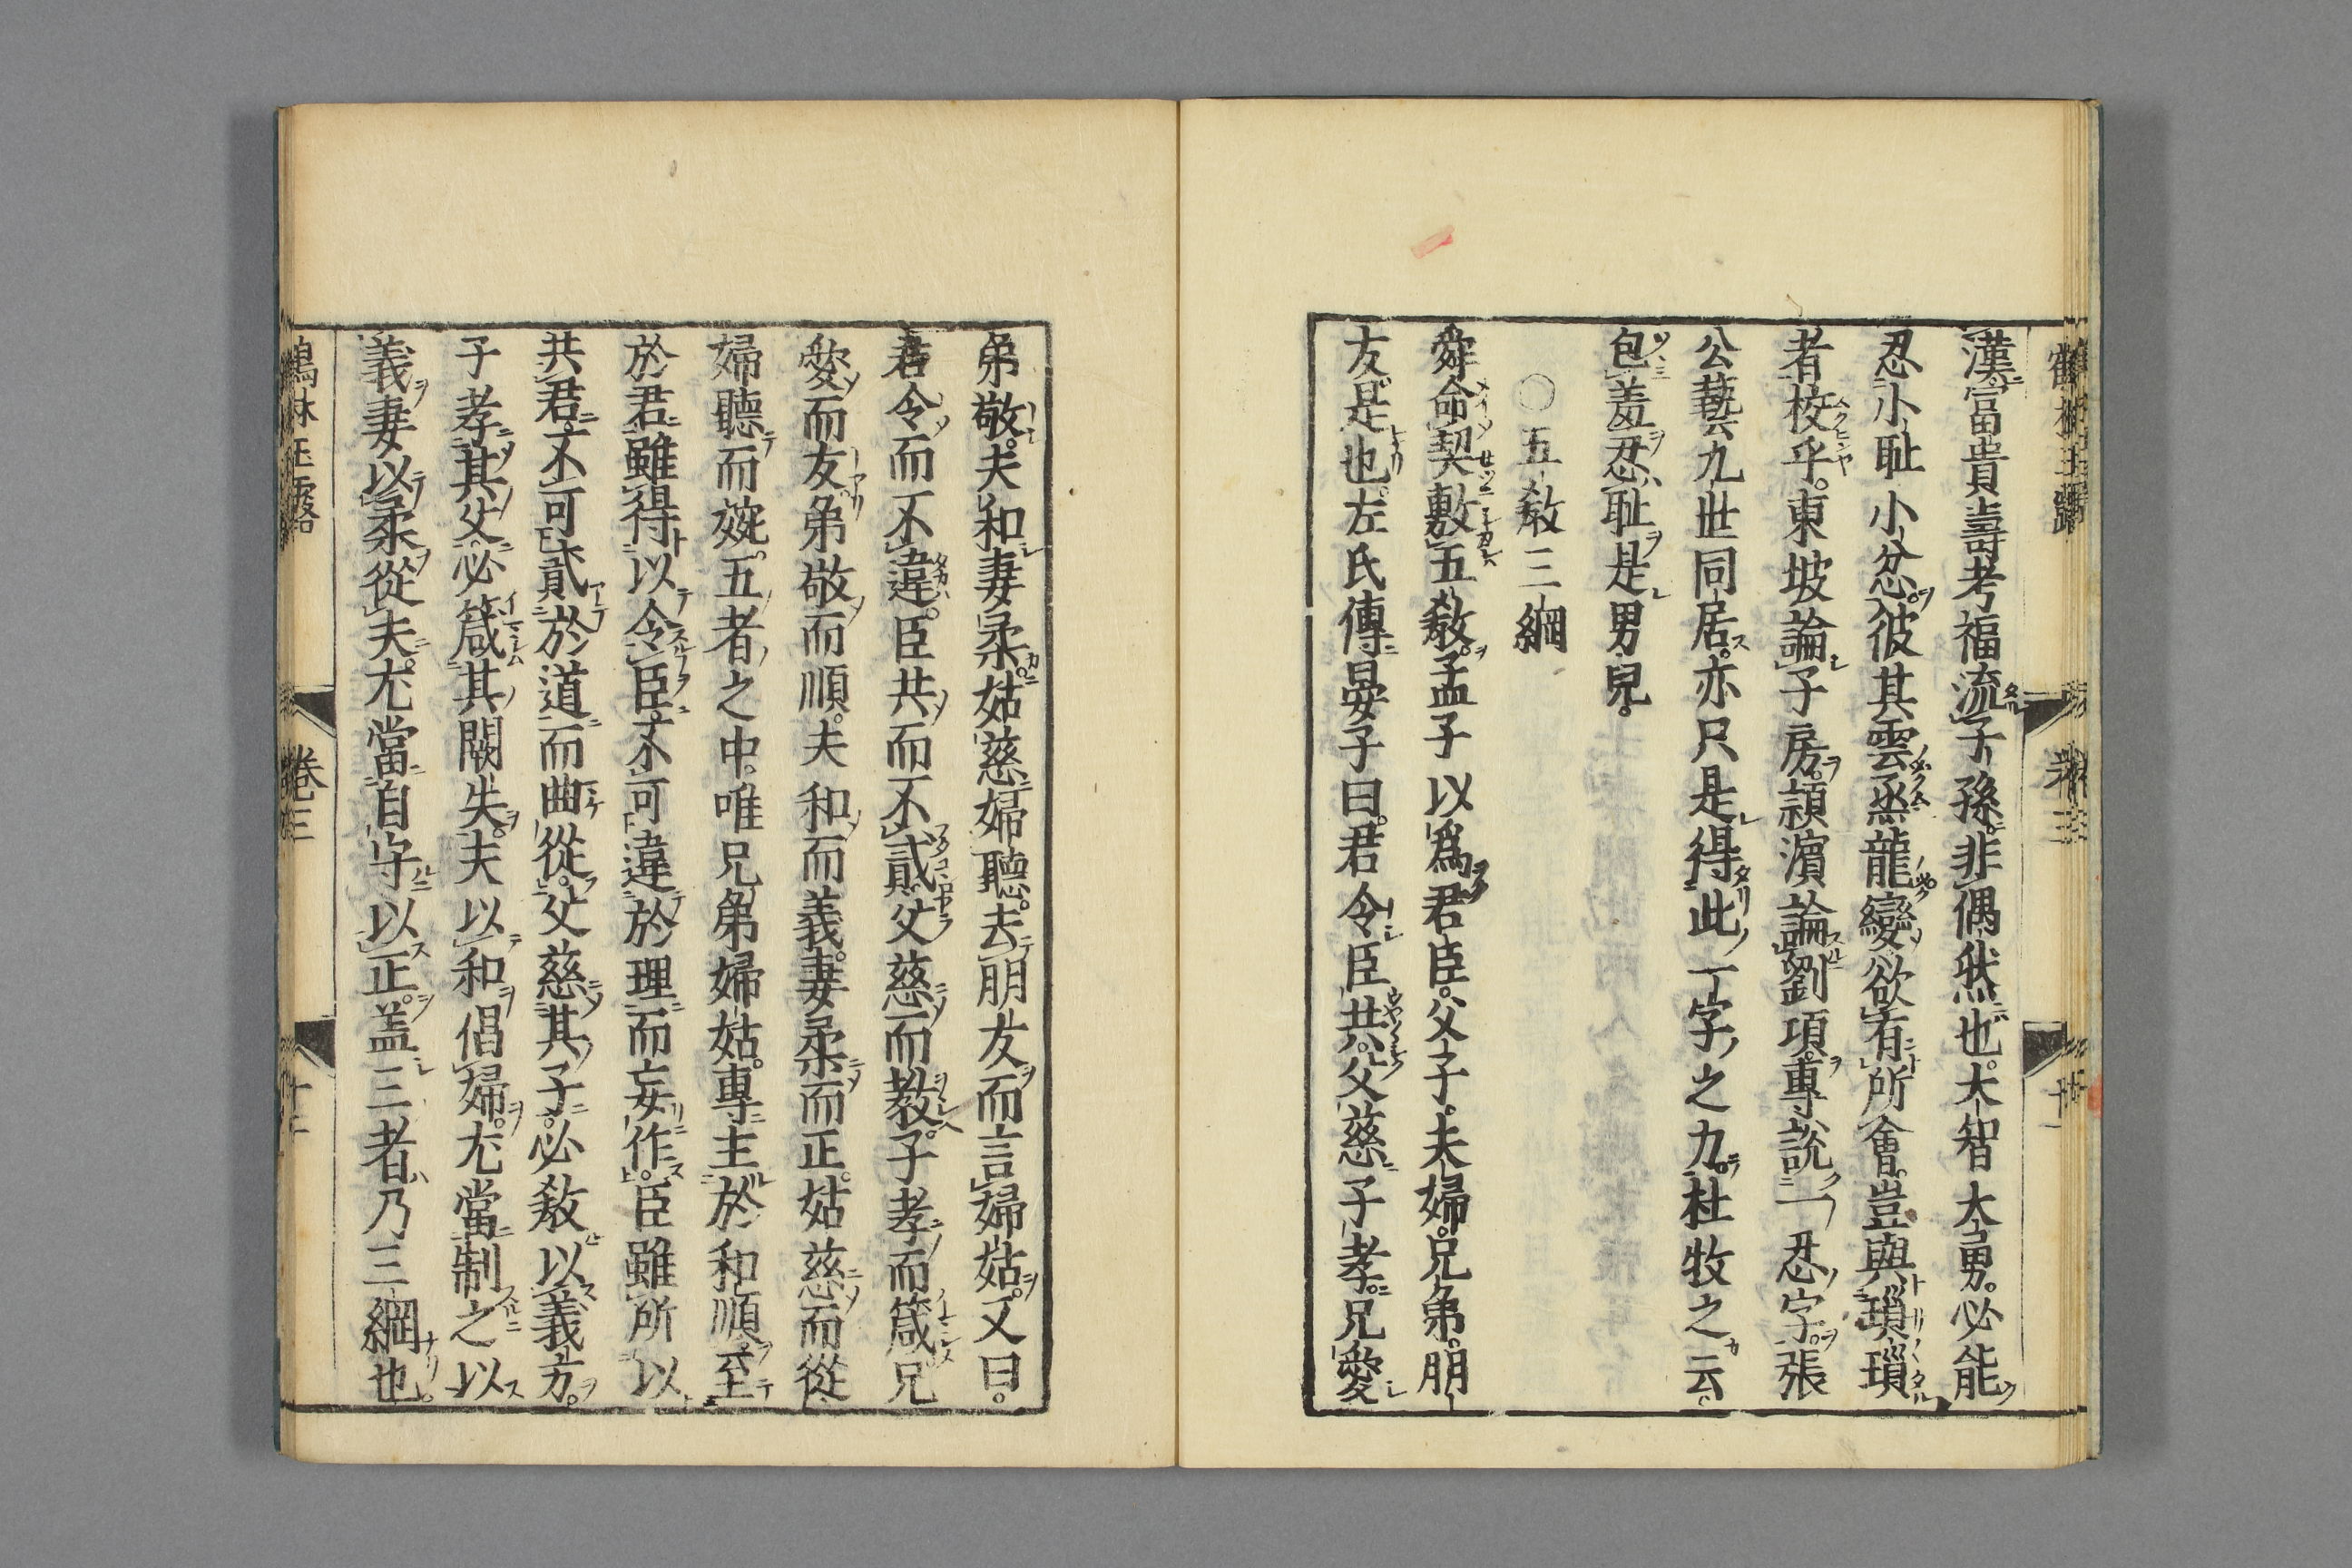 漢富貴壽考福流子孫非偶然也。大智大勇。必能
忍小耻小忿。彼其雲烝龍變欲有所會。豈與瑣瑣
者校乎。東坡論子房。潁濵論劉項。專説一忍字。張
公藝九世同居。亦只是得此一字之力。杜牧之云
包羞忍耻是男兒。
〇五敎三綱
舜命契敷五敎。孟子以爲君臣。父子。夫婦。兄弟。朋
友是也。左氏傳晏子曰。君令臣共。父慈子孝。兄愛
弟敬。夫和妻柔。姑慈婦聽。去朋友而言婦姑。又曰。
君令而不違。臣共而不貳。父慈而敎。子孝而箴。兄
愛而友。弟敬而順。夫和而義。妻柔而正。姑慈而從
婦聽而婉。五者之中。唯兄弟婦姑。專主於和順。至
於君雖得以令臣。不可違於理而妄作。臣雖所以
共君。不可貳於道而曲從。父慈其子。必敎以義方。
子孝其父必箴其闕失。夫以和倡婦。尤當制之以
義妻以柔從夫。尤當自守以正。盖三者乃三綱也。
鶴林玉露 卷三 十二